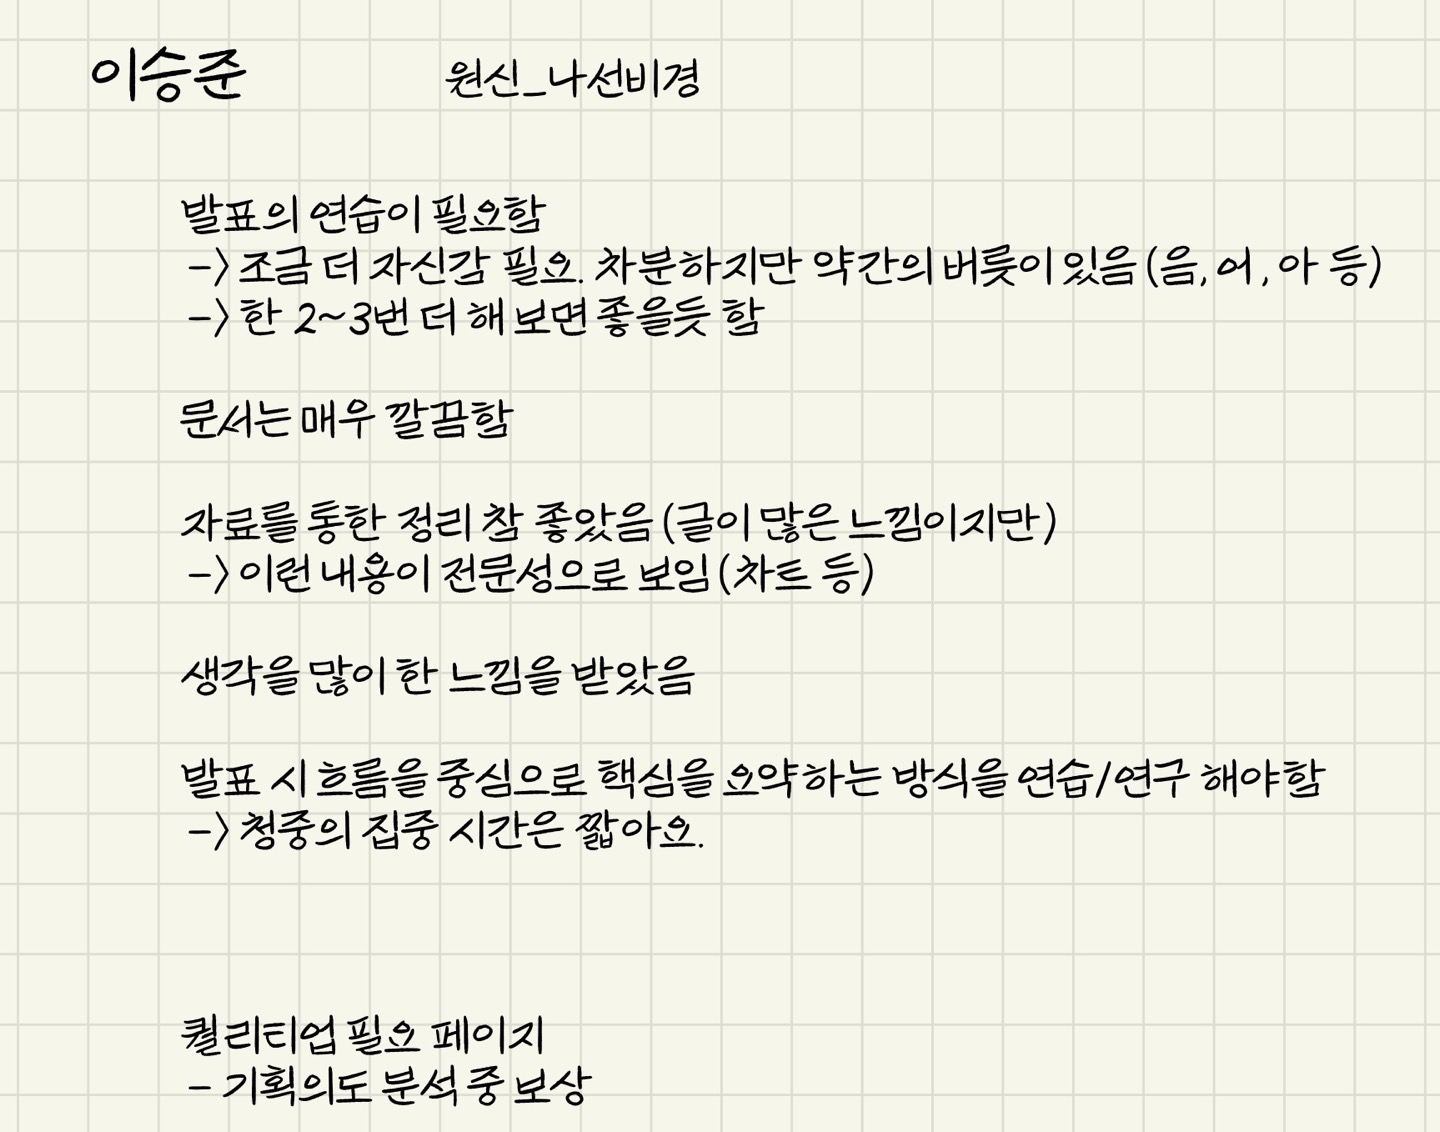 이승준 원신_나선비경
발표의 연습이 필요함
-> 조금 더 자신감 필요. 차분하지만 약간의 버릇이 있음 (음, 어, 아 등)
-> 한 2~3번 더 해 보면 좋을듯 함
문서는 매우 깔끔함
자료를 통한 정리 참 좋았음 (글이 많은 느낌이지만)
-> 이런 내용이 전문성으로 보임 (차트 등)
생각을 많이 한 느낌을 받았음
발표 시 흐름을 중심으로 핵심을 요약하는 방식을 연습/연구 해야함
-> 청중의 집중 시간은 짧아요.
퀄리티업 필요 페이지
- 기획의도 분석 중 보상